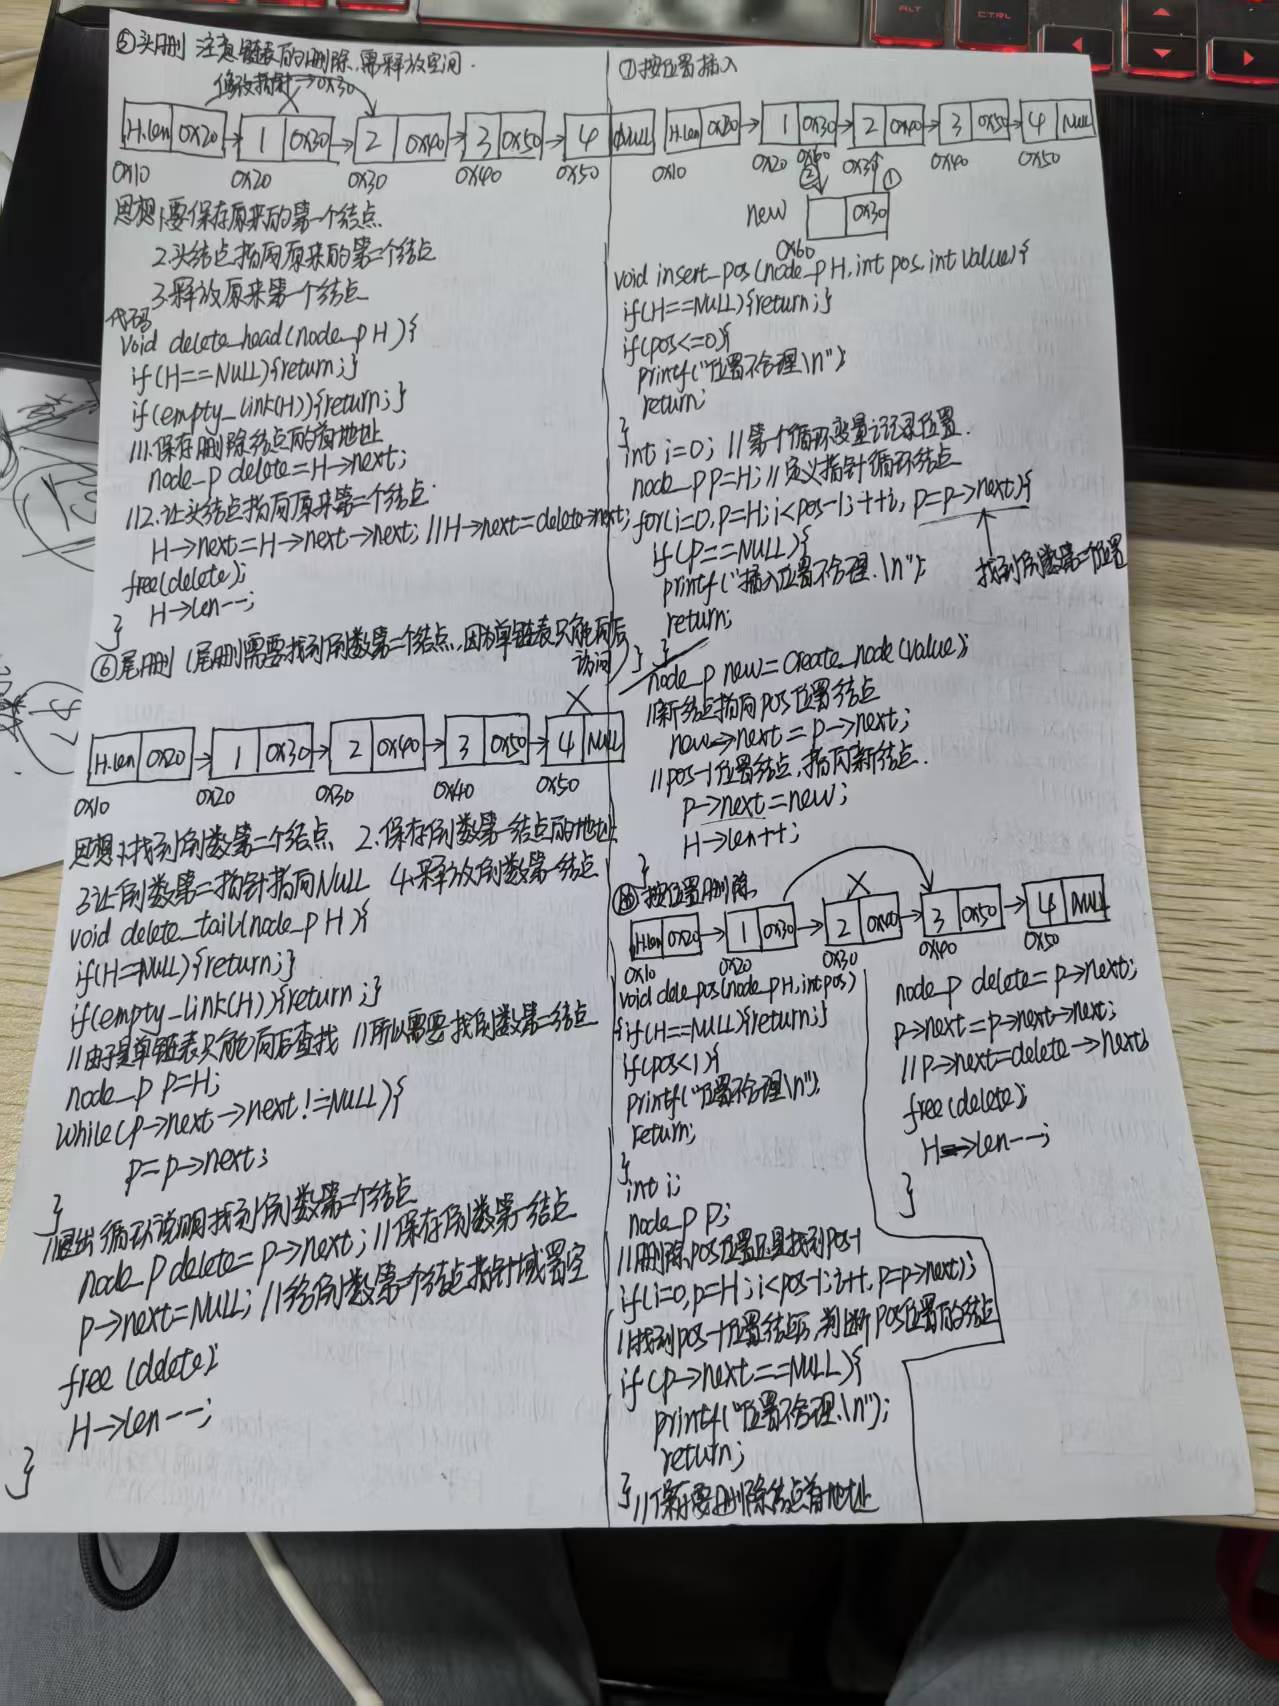 ALT
CTRL
⑤头删 注意链表的删除,需释放空间.
修改指针→0x30
H.len 0x20 1 0x30 2 0x40 3 0x50 4 NULL
0x10 0x20 0x30 0x40 0x50
思想1.要保存原来的第一个结点
2.头结点指向原来的第二个结点
3.释放原来第一个结点
代码
void delete_head(node_p H){
if(H==NULL){return;}
if(empty_link(H)){return;}
//1.保存删除结点的首地址
node_p delete=H->next;
//2.让头结点指向原来第二个结点.
H->next=H->next->next; //H->next=delete->next;
free(delete);
H->len--;
}
⑥尾删(尾删需要找到倒数第二个结点,因为单链表只能向后
访问)
H.len 0x20 1 0x30 2 0x40 3 0x50 4 NULL
0x10 0x20 0x30 0x40 0x50
思想1.找到倒数第二个结点 2.保存倒数第一结点的地址
3.让倒数第二指针指向NULL 4.释放倒数第一结点
void delete_tail(node_p H){
if(H==NULL){return;}
if(empty_link(H)){return;}
//由于是单链表只能向后查找 //所以需要找倒数第二结点
node_p p=H;
while(p->next->next!=NULL){
p=p->next;
}
//退出循环说明找到倒数第二个结点
node_p delete=p->next; //保存倒数第一结点
p->next=NULL; //给倒数第二个结点指针域置空
free(delete);
H->len--;
}
⑦按位置插入
H.len 0x20 1 0x30 2 0x40 3 0x50 4 NULL
0x10 0x20 0x60 0x30 0x40 0x50
② ①
new 0x30
0x60
void insert_pos(node_p H,int pos,int value){
if(H==NULL){return;}
if(pos<=0){
printf("位置不合理\n");
return;
}
int i=0; //第一个循环变量记录位置.
node_p p=H; //定义指针循环结点
for(i=0,p=H;i<pos-1;++i,p=p->next){
if(p==NULL){
printf("插入位置不合理.\n");
找到倒数第二位置
return;
} }
node_p new=create_node(value);
//新结点指向pos位置结点
new->next=p->next;
//pos-1位置结点,指向新结点.
p->next=new;
H->len++;
}
⑧按位置删除
H.len 0x20 1 0x30 2 0x40 3 0x50 4 NULL
0x10 0x20 0x30 0x40 0x50
void dele_pos(node_p H,int pos)
{if(H==NULL){return;}
if(pos<1){
printf("位置不合理\n");
return;
}
int i;
node_p p;
//删除pos位置只是找到pos-1
if(i=0,p=H;i<pos-1;i++,p=p->next);
//找到pos-1位置结点后,判断pos位置的结点
if(p->next==NULL){
printf("位置不合理.\n");
return;
} //保存要删除结点首地址
node_p delete=p->next;
p->next=p->next->next;
//p->next=delete->next
free(delete);
H->len--;
}